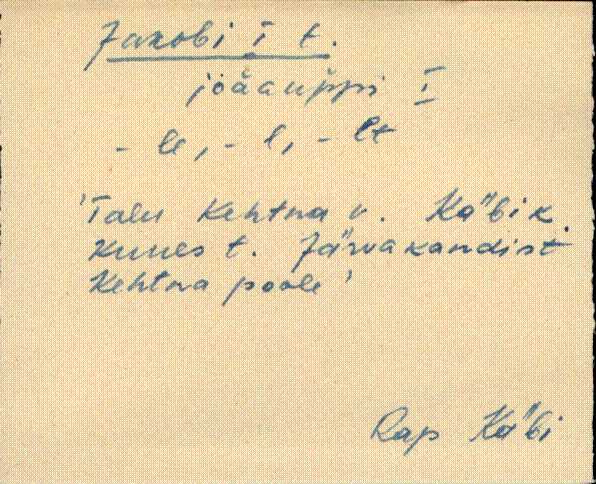 Jakobi I t.
jöäauppi I
- le, - l, - lt
'Talu Kehtna v. Käbik.
kunes t. Järvakandist
Kehtna poole'
Rap Käbi